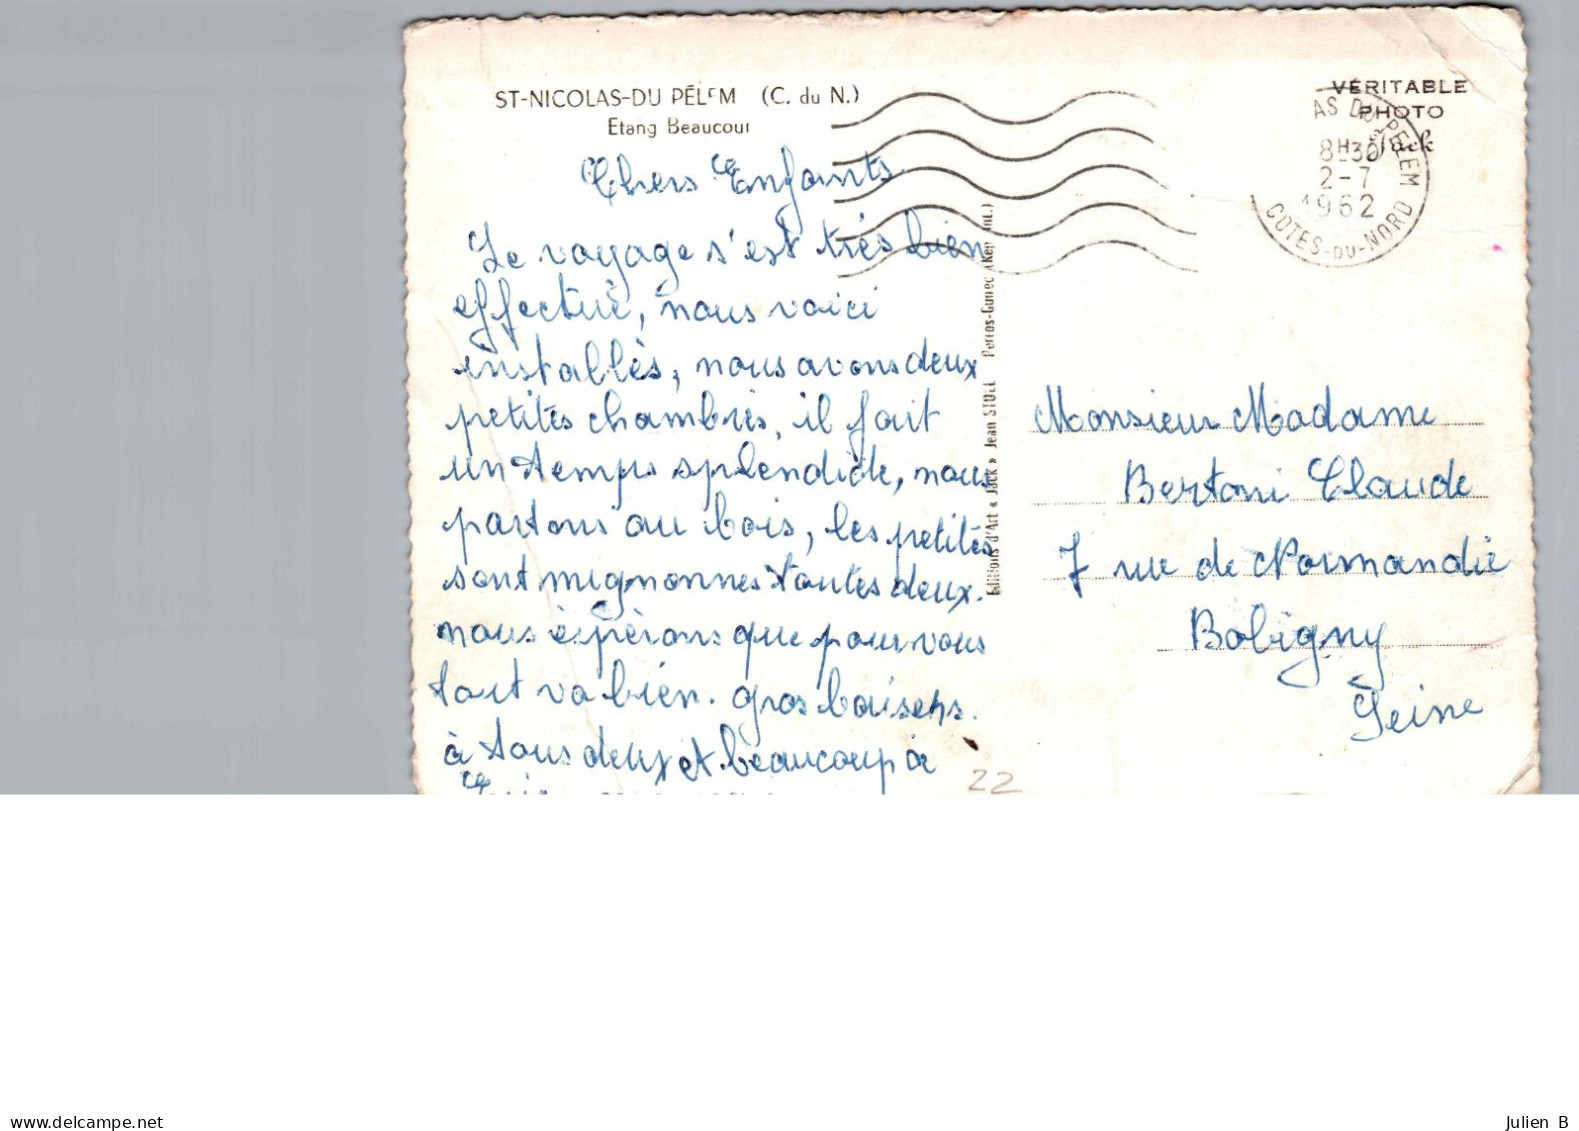 ST-NICOLAS-DU PÉLEM (C. du N.)
Etang Beaucour
Chers Enfants
Le voyage s'est très bien
effectué, nous voici
installés, nous avons deux
petites chambres, il fait
un temps splendide, nous
partons au bois, les petites
sont mignonnes toutes deux.
nous éspèrons que pour vous
tout va bien. gros baisers.
à tous deux et beaucoup à
22
Editions d'Art « Jack » Jean STOLL Perros-Guirec (Rep. int.)
VÉRITABLE
PHOTO
Jack
AS DU PELEM
8H30
2-7
1962
COTES-DU-NORD
Monsieur Madame
Bertoni Claude
7 rue de Normandie
Bobigny
Seine
www.delcampe.net
Julien B